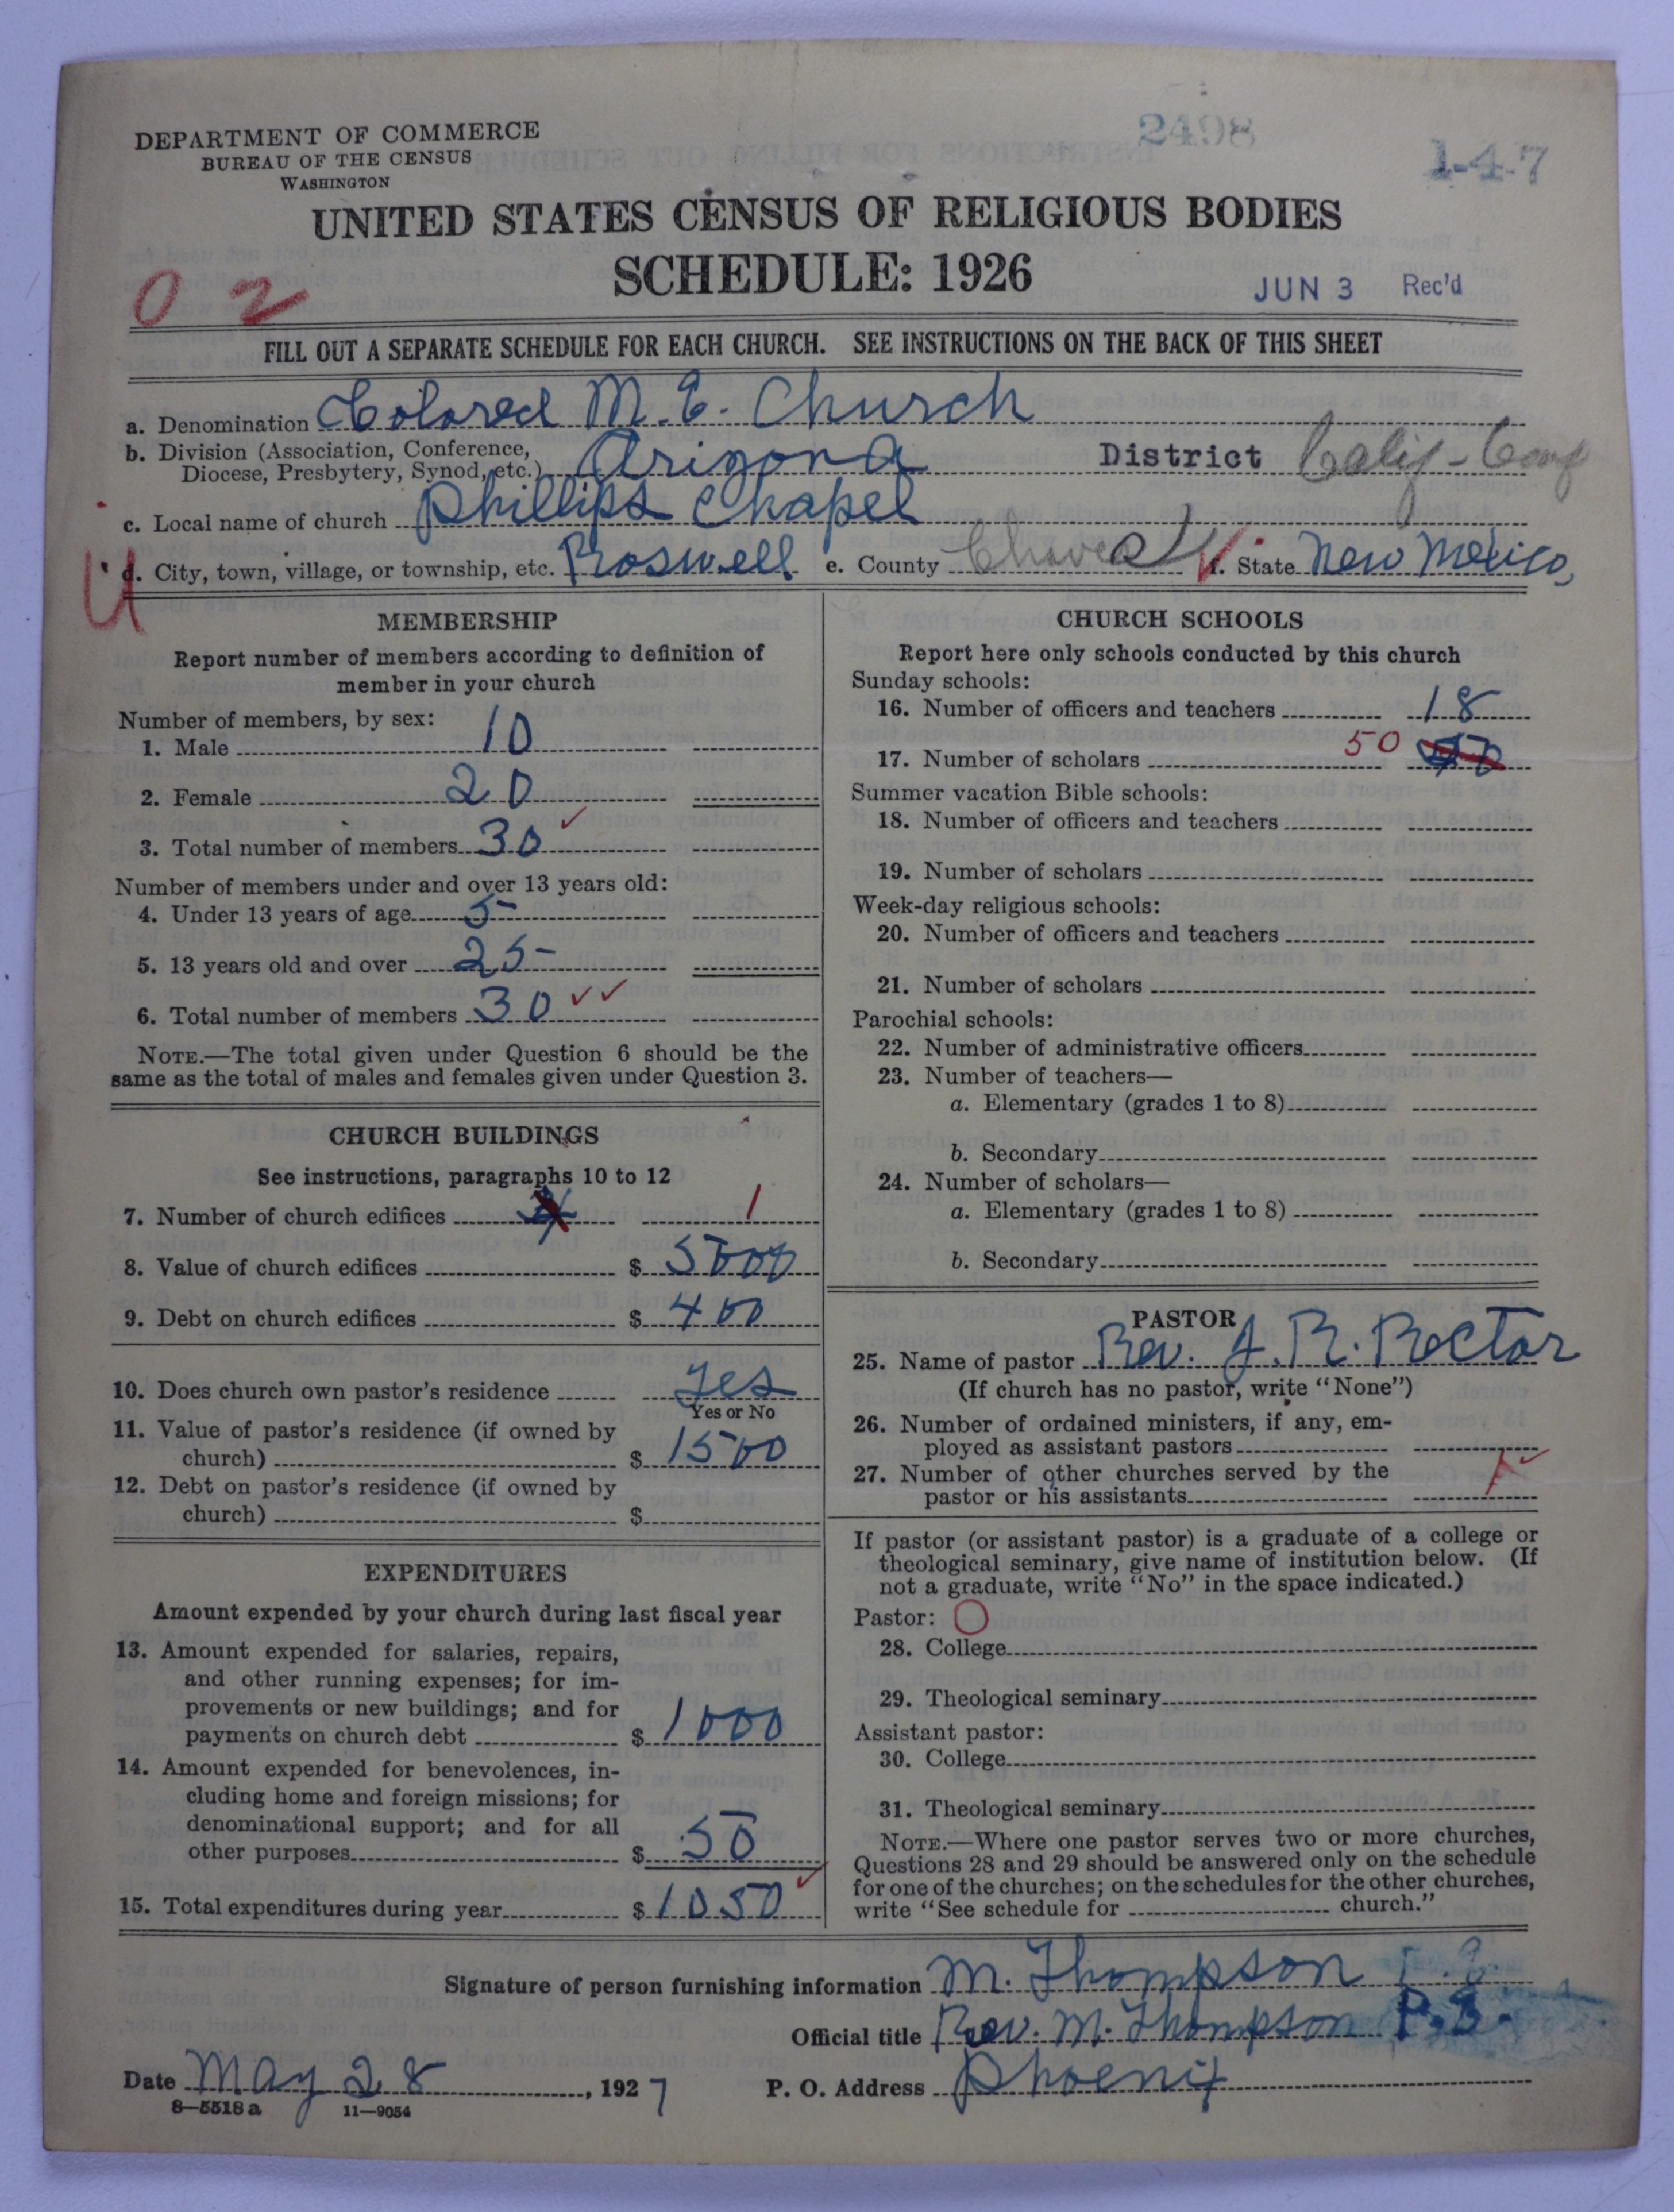 DEPARTMENT OF COMMERCE
BUREAU OF THE CENSUS
WASHINGTON
2498
1-4-7
UNITED STATES CENSUS OF RELIGIOUS BODIES
SCHEDULE: 1926
0 2
JUN 3 Rec'd
FILL OUT A SEPARATE SCHEDULE FOR EACH CHURCH. SEE INSTRUCTIONS ON THE BACK OF THIS SHEET
a. Denomination Colored M. E. Church
b. Division (Association, Conference, Diocese, Presbytery, Synod, etc.) Arizona District Calif-Conf
c. Local name of church Phillips Chapel
d. City, town, village, or township, etc. Roswell e. County Chaves f. State New Mexico,
MEMBERSHIP
Report number of members according to definition of
member in your church
Number of members, by sex:
1. Male 10
2. Female 20
3. Total number of members 30
Number of members under and over 13 years old:
4. Under 13 years of age 5
5. 13 years old and over 25
6. Total number of members 30
NOTE.—The total given under Question 6 should be the
same as the total of males and females given under Question 3.
CHURCH BUILDINGS
See instructions, paragraphs 10 to 12
7. Number of church edifices 1
8. Value of church edifices $ 5000
9. Debt on church edifices $ 400
10. Does church own pastor's residence Yes
Yes or No
11. Value of pastor's residence (if owned by
church) $ 1500
12. Debt on pastor's residence (if owned by
church) $
EXPENDITURES
Amount expended by your church during last fiscal year
13. Amount expended for salaries, repairs,
and other running expenses; for im-
provements or new buildings; and for
payments on church debt $ 1000
14. Amount expended for benevolences, in-
cluding home and foreign missions; for
denominational support; and for all
other purposes $ 50
15. Total expenditures during year $ 1050
CHURCH SCHOOLS
Report here only schools conducted by this church
Sunday schools:
16. Number of officers and teachers 18
17. Number of scholars 50
Summer vacation Bible schools:
18. Number of officers and teachers
19. Number of scholars
Week-day religious schools:
20. Number of officers and teachers
21. Number of scholars
Parochial schools:
22. Number of administrative officers
23. Number of teachers—
a. Elementary (grades 1 to 8)
b. Secondary
24. Number of scholars—
a. Elementary (grades 1 to 8)
b. Secondary
PASTOR
25. Name of pastor Rev. J. R. Rector
(If church has no pastor, write "None")
26. Number of ordained ministers, if any, em-
ployed as assistant pastors
27. Number of other churches served by the
pastor or his assistants
If pastor (or assistant pastor) is a graduate of a college or
theological seminary, give name of institution below. (If
not a graduate, write "No" in the space indicated.)
Pastor: O
28. College
29. Theological seminary
Assistant pastor:
30. College
31. Theological seminary
NOTE.—Where one pastor serves two or more churches,
Questions 28 and 29 should be answered only on the schedule
for one of the churches; on the schedules for the other churches,
write "See schedule for church."
Signature of person furnishing information M. Thompson
Official title Rev. M. Thompson P. E.
Date May 28, 1927 P. O. Address Phoenix
8—5518 a 11—9054